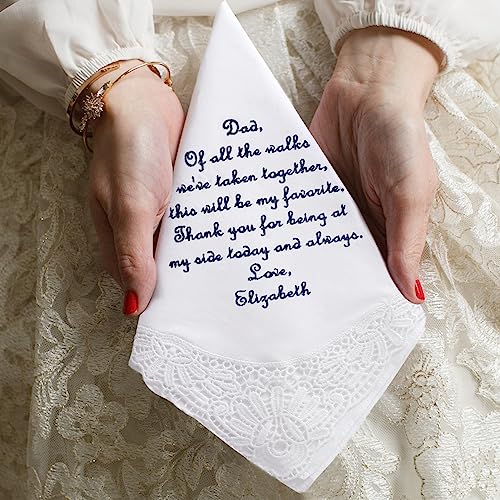 Dad,
Of all the walks
we've taken together,
this will be my favorite.
Thank you for being at
my side today and always.
Love,
Elizabeth